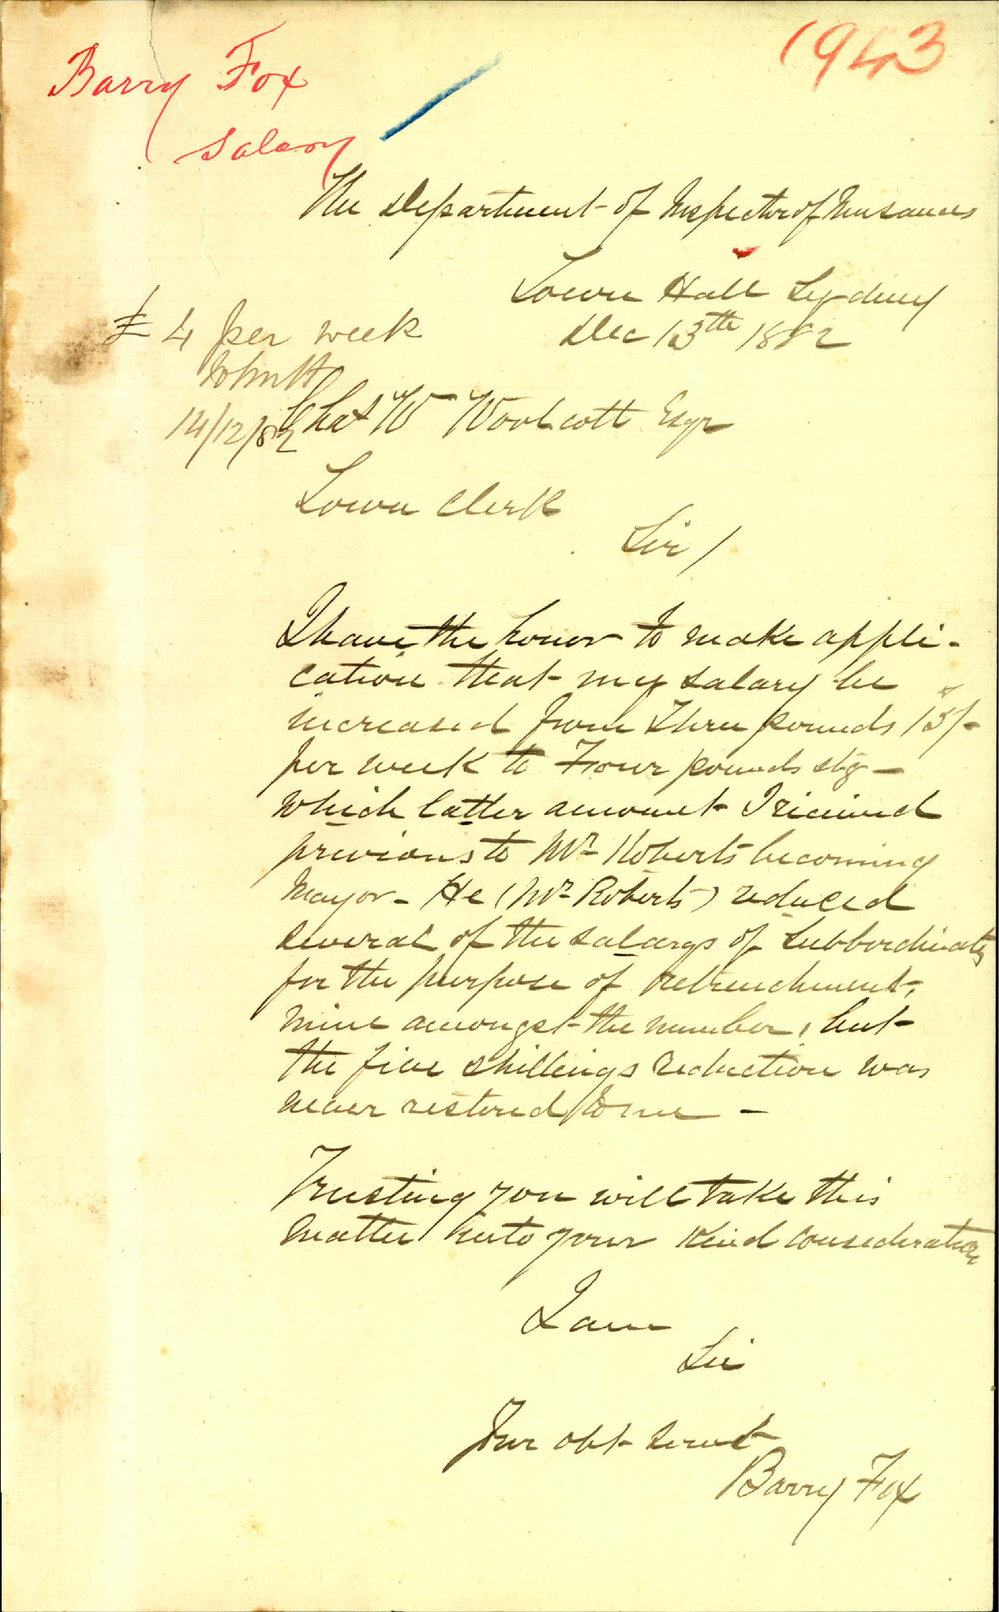 1943
Barry Fox
Salary
The Department of Inspector of Nuisances
Town Hall Sydney
Dec 13th 1882
£4 per week
14/12/82
Chas W Woolcott Esqr
Town Clerk
Sir/
I have the honor to make appli-
cation that my salary be
increased from Three pounds 15/-
per week to Four pounds stg -
which latter amount I received
previous to Mr Roberts becoming
Mayor - He (Mr Roberts) reduced
several of the salarys of subbordinates
for the purpose of retrenchment,
mine amongst the number, but
the five shillings reduction was
never restored to me -
Trusting you will take this
matter into your kind consideration
I am
Sir
Your obt servt
Barry Fox